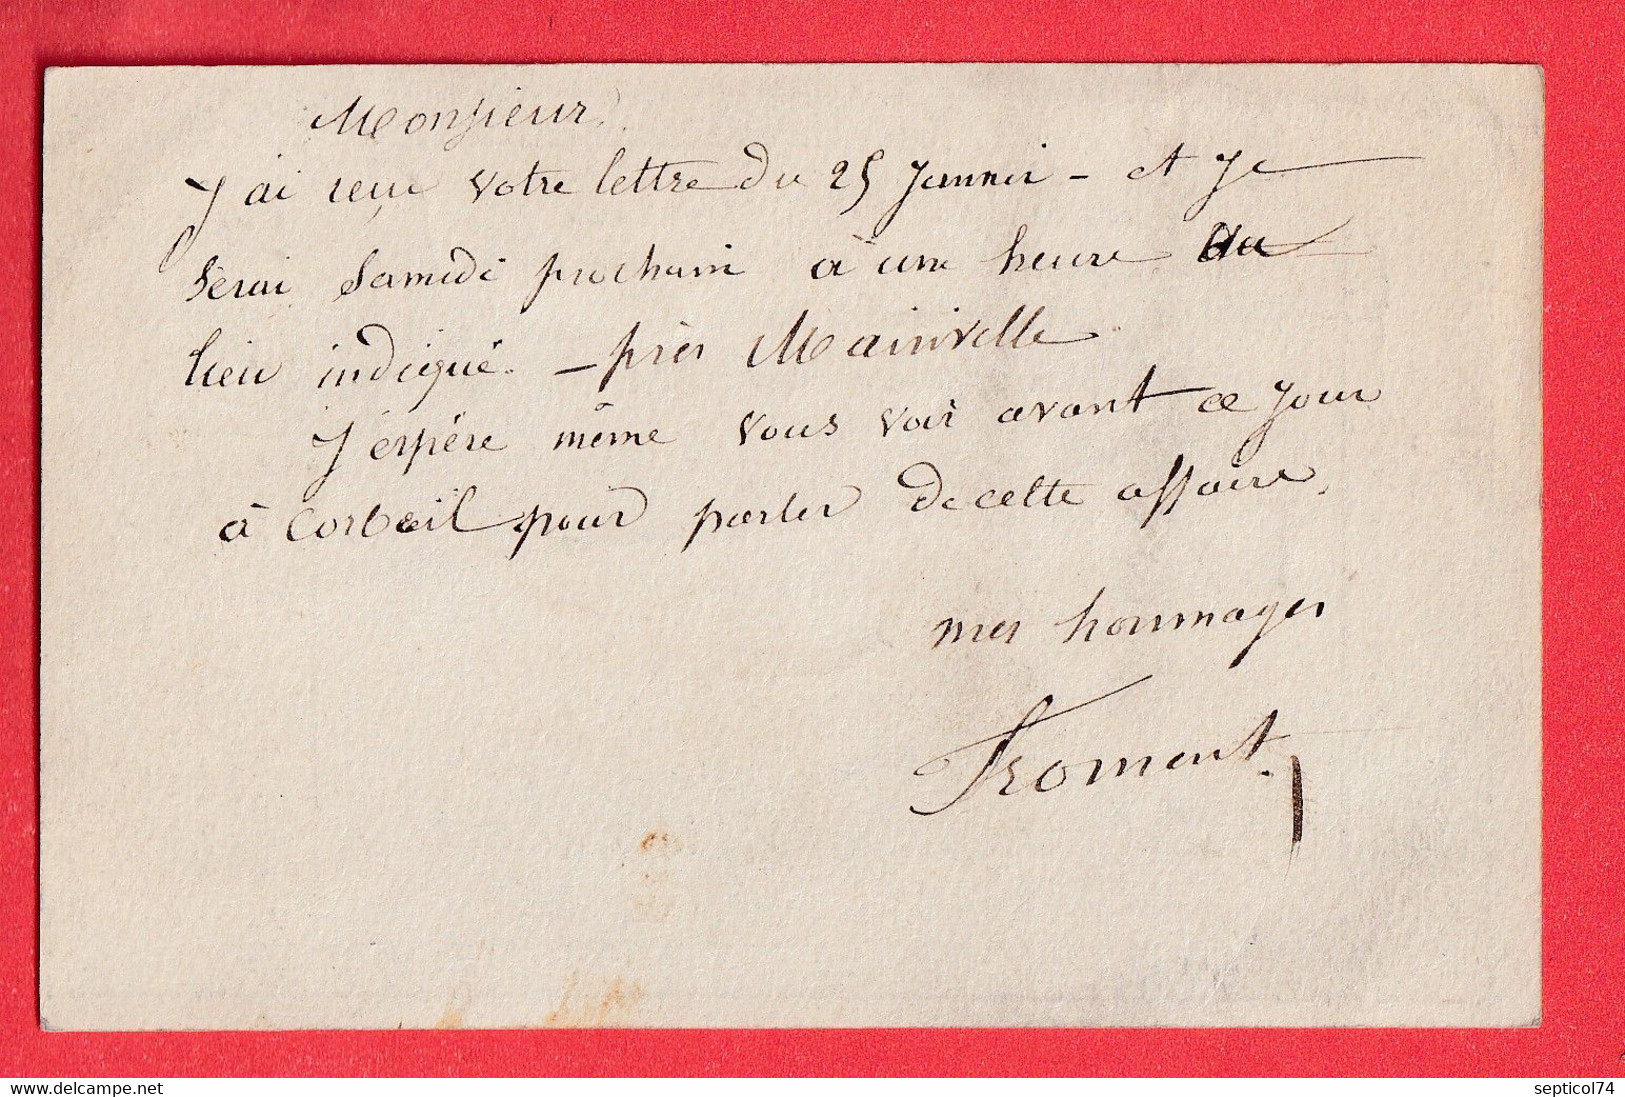 Monsieur.
J'ai reçu votre lettre du 25 Janvier - et Je
serai Samedi prochain à une heure au
lieu indiqué. - près Mainville
J'espère même vous voir avant ce jour
à Corbeil pour parler de cette affaire,
mes hommages
Froment.
delcampe.net
septicol74